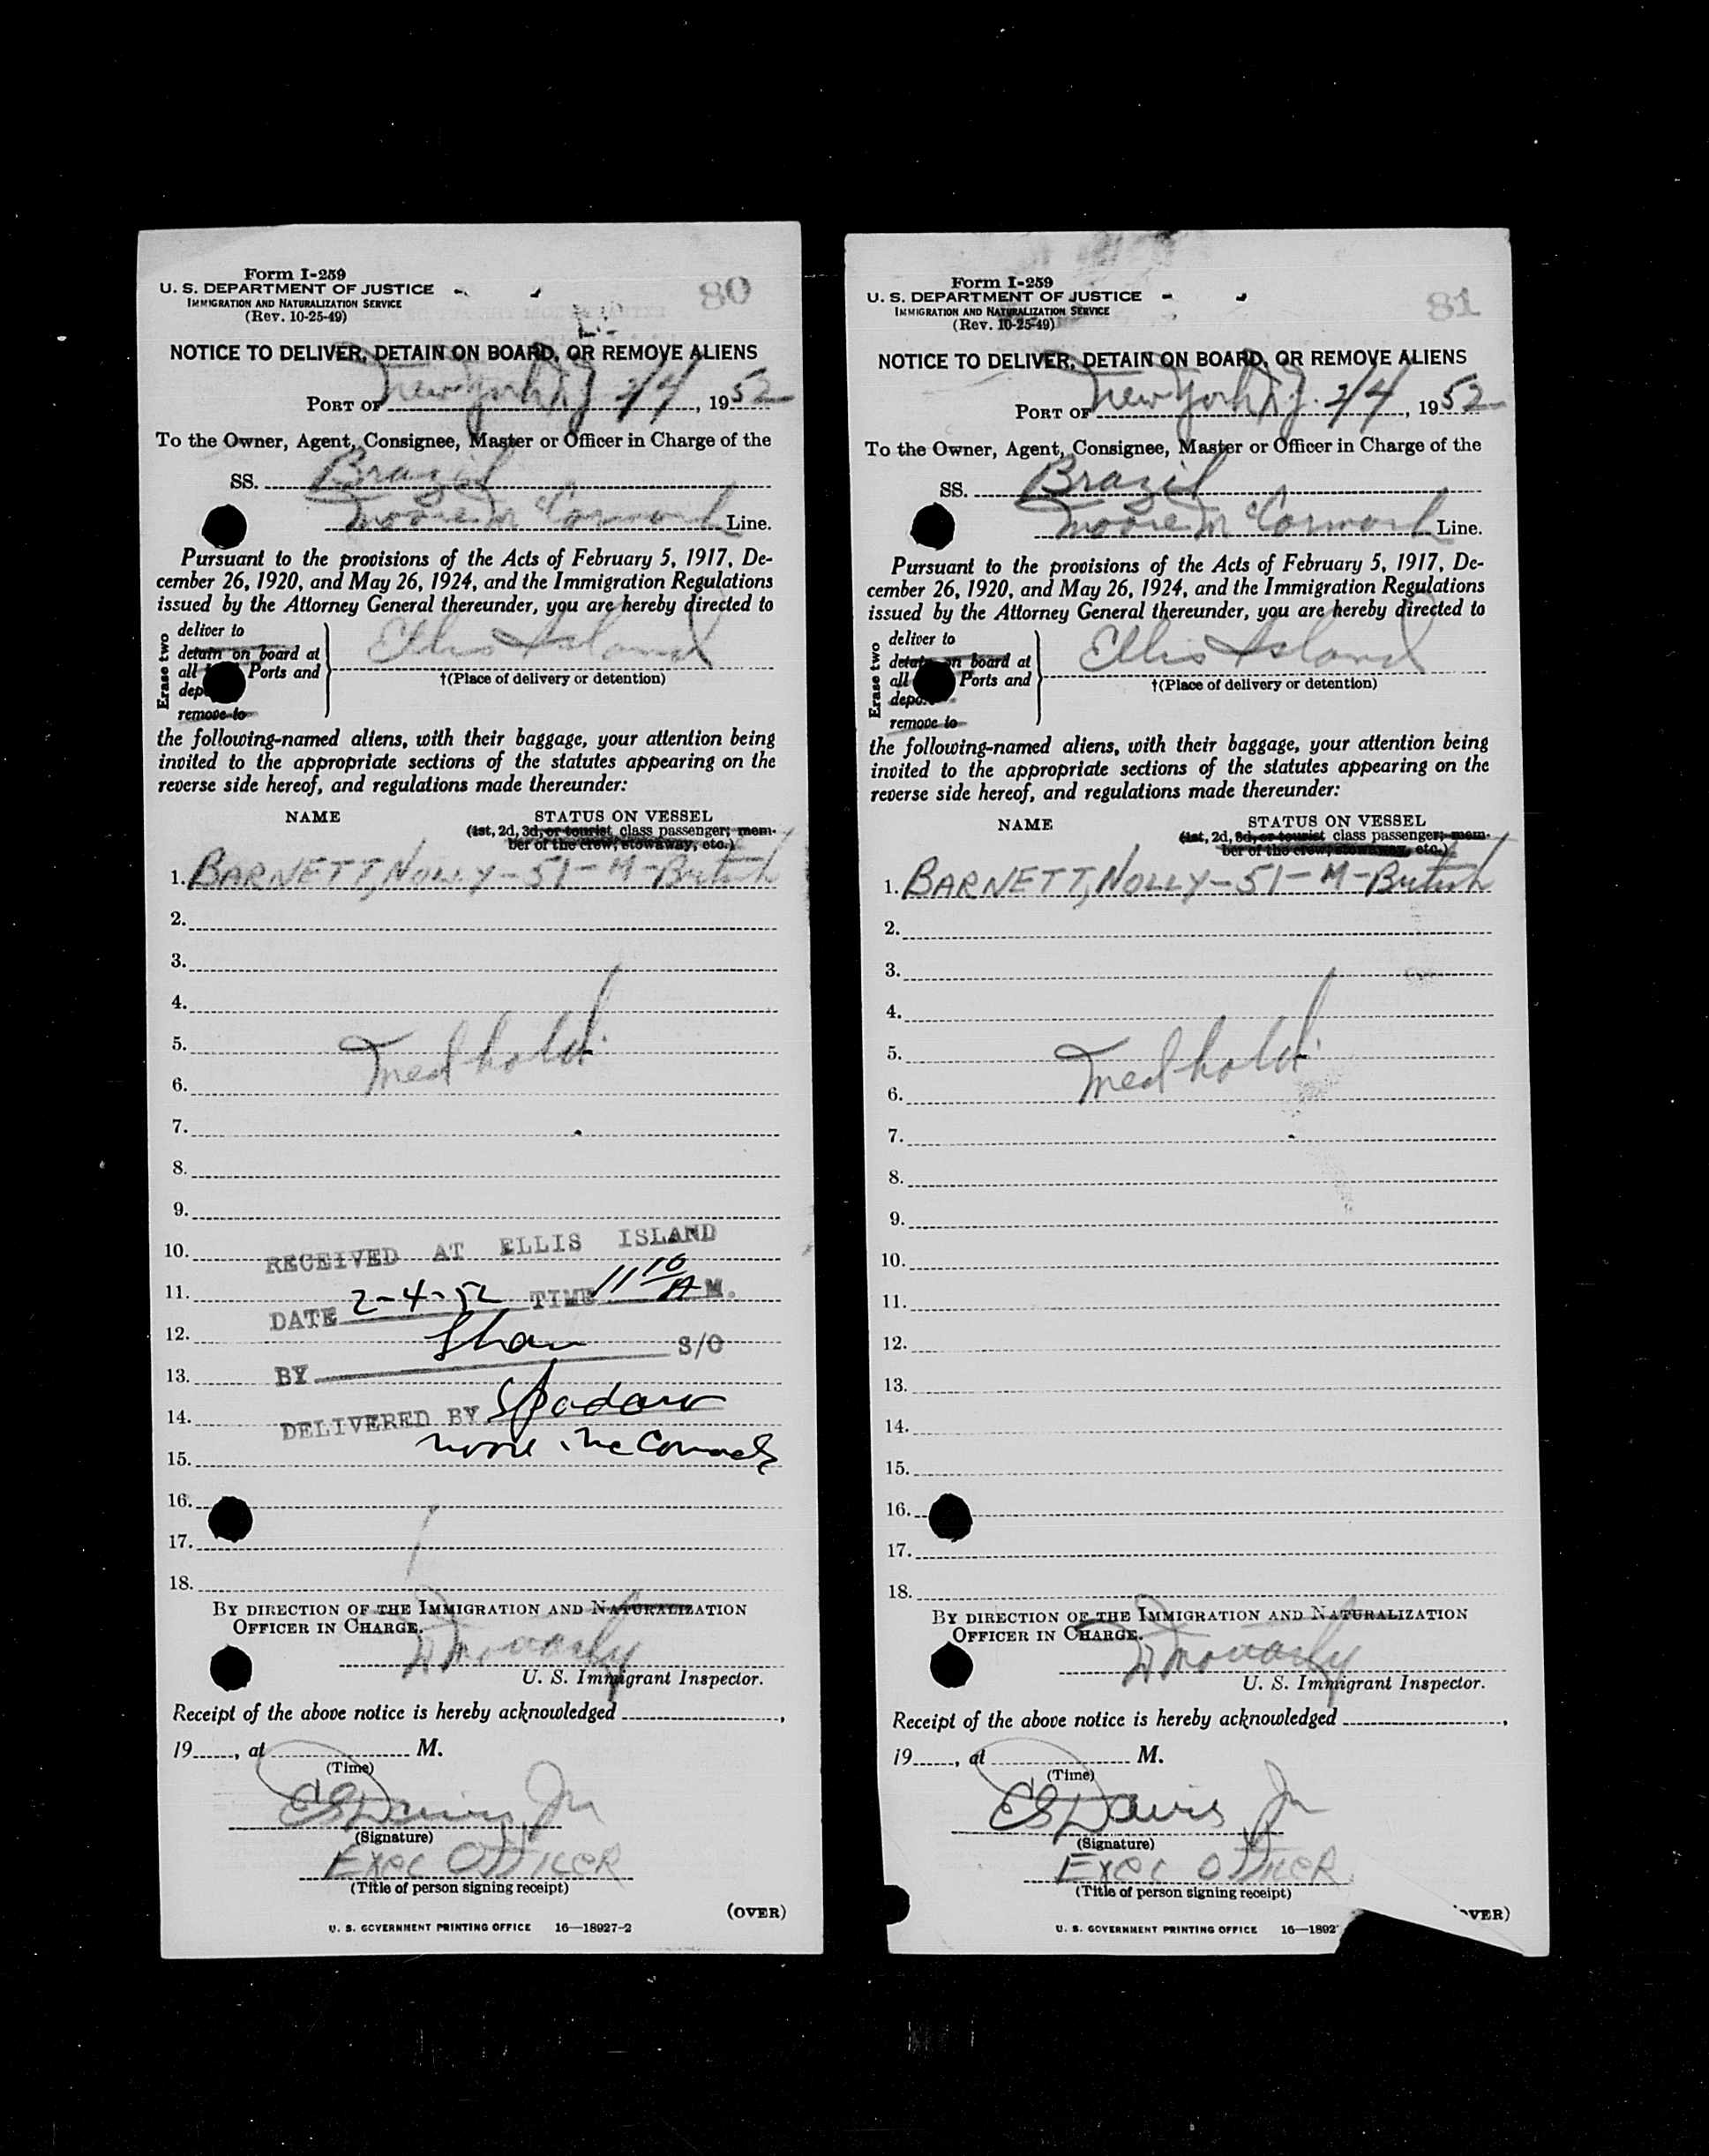 Form I-259
U. S. DEPARTMENT OF JUSTICE
IMMIGRATION AND NATURALIZATION SERVICE
(Rev. 10-25-49)
80
NOTICE TO DELIVER, DETAIN ON BOARD, OR REMOVE ALIENS
PORT OF New York NY 2/4, 1952
To the Owner, Agent, Consignee, Master or Officer in Charge of the
SS. Brazil
Moore McCormack Line.
Pursuant to the provisions of the Acts of February 5, 1917, De-
cember 26, 1920, and May 26, 1924, and the Immigration Regulations
issued by the Attorney General thereunder, you are hereby directed to
Erase two
deliver to
detain on board at
all Ports and
dep
remove to
Ellis Island
†(Place of delivery or detention)
the following-named aliens, with their baggage, your attention being
invited to the appropriate sections of the statutes appearing on the
reverse side hereof, and regulations made thereunder:
NAME STATUS ON VESSEL
(1st, 2d, 3d, or tourist class passenger; mem-
ber of the crew, stowaway, etc.)
1. BARNETT, NOLLY - 51 - M - British
2.
3.
4.
5. Med hold
6.
7.
8.
9.
10. RECEIVED AT ELLIS ISLAND
11. DATE 2-4-52 TIME 11 10 A M.
12. S/O
13. BY
14. DELIVERED BY Spadaro
15. Moore McCormack
16.
17.
18.
BY DIRECTION OF THE IMMIGRATION AND NATURALIZATION
OFFICER IN CHARGE.
U. S. Immigrant Inspector.
Receipt of the above notice is hereby acknowledged ,
19 , at M.
(Time)
ES Davis Jr
(Signature)
Exec OFFICER
(Title of person signing receipt)
(OVER)
U. S. GOVERNMENT PRINTING OFFICE 16—18927-2
Form I-259
U. S. DEPARTMENT OF JUSTICE
IMMIGRATION AND NATURALIZATION SERVICE
(Rev. 10-25-49)
81
NOTICE TO DELIVER, DETAIN ON BOARD, OR REMOVE ALIENS
PORT OF New York NY. 2/4, 1952
To the Owner, Agent, Consignee, Master or Officer in Charge of the
SS. Brazil
Moore McCormack Line.
Pursuant to the provisions of the Acts of February 5, 1917, De-
cember 26, 1920, and May 26, 1924, and the Immigration Regulations
issued by the Attorney General thereunder, you are hereby directed to
Erase two
deliver to
detain on board at
all Ports and
depo
remove to
Ellis Island
†(Place of delivery or detention)
the following-named aliens, with their baggage, your attention being
invited to the appropriate sections of the statutes appearing on the
reverse side hereof, and regulations made thereunder:
NAME STATUS ON VESSEL
(1st, 2d, 3d, or tourist class passenger; mem-
ber of the crew, stowaway, etc.)
1. BARNETT, NOLLY - 51 - M - British
2.
3.
4.
5. Med hold
6.
7.
8.
9.
10.
11.
12.
13.
14.
15.
16.
17.
18.
BY DIRECTION OF THE IMMIGRATION AND NATURALIZATION
OFFICER IN CHARGE.
U. S. Immigrant Inspector.
Receipt of the above notice is hereby acknowledged ,
19 , at M.
(Time)
ES Davis Jr
(Signature)
Exec OFFICER
(Title of person signing receipt)
VER)
U. S. GOVERNMENT PRINTING OFFICE 16—1892